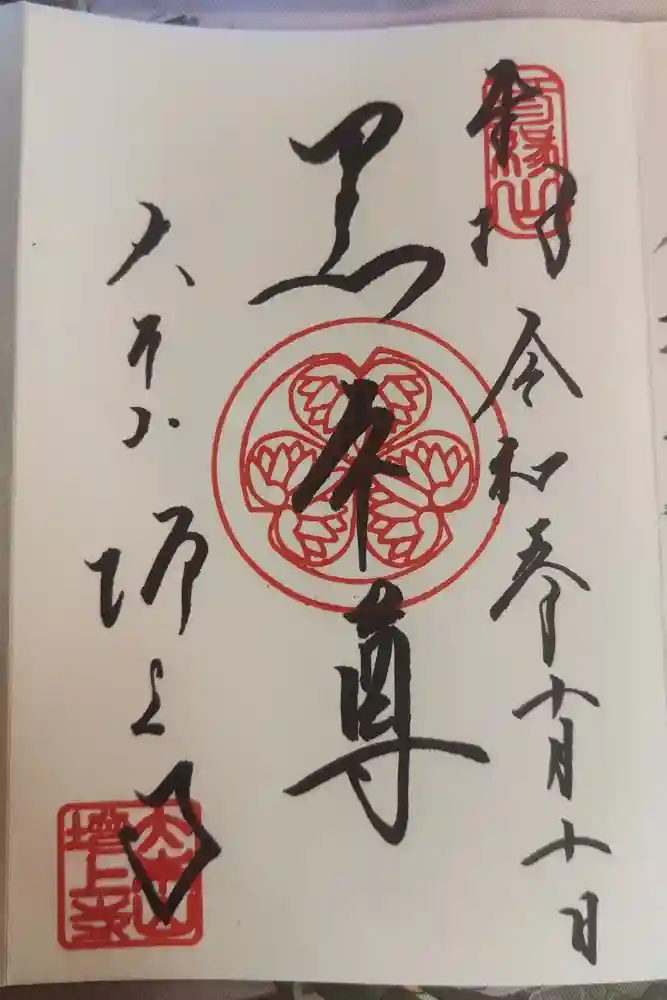 奉拝
令和参年十月十日
黒本尊
大本山増上寺
三縁山
大本山
増上寺